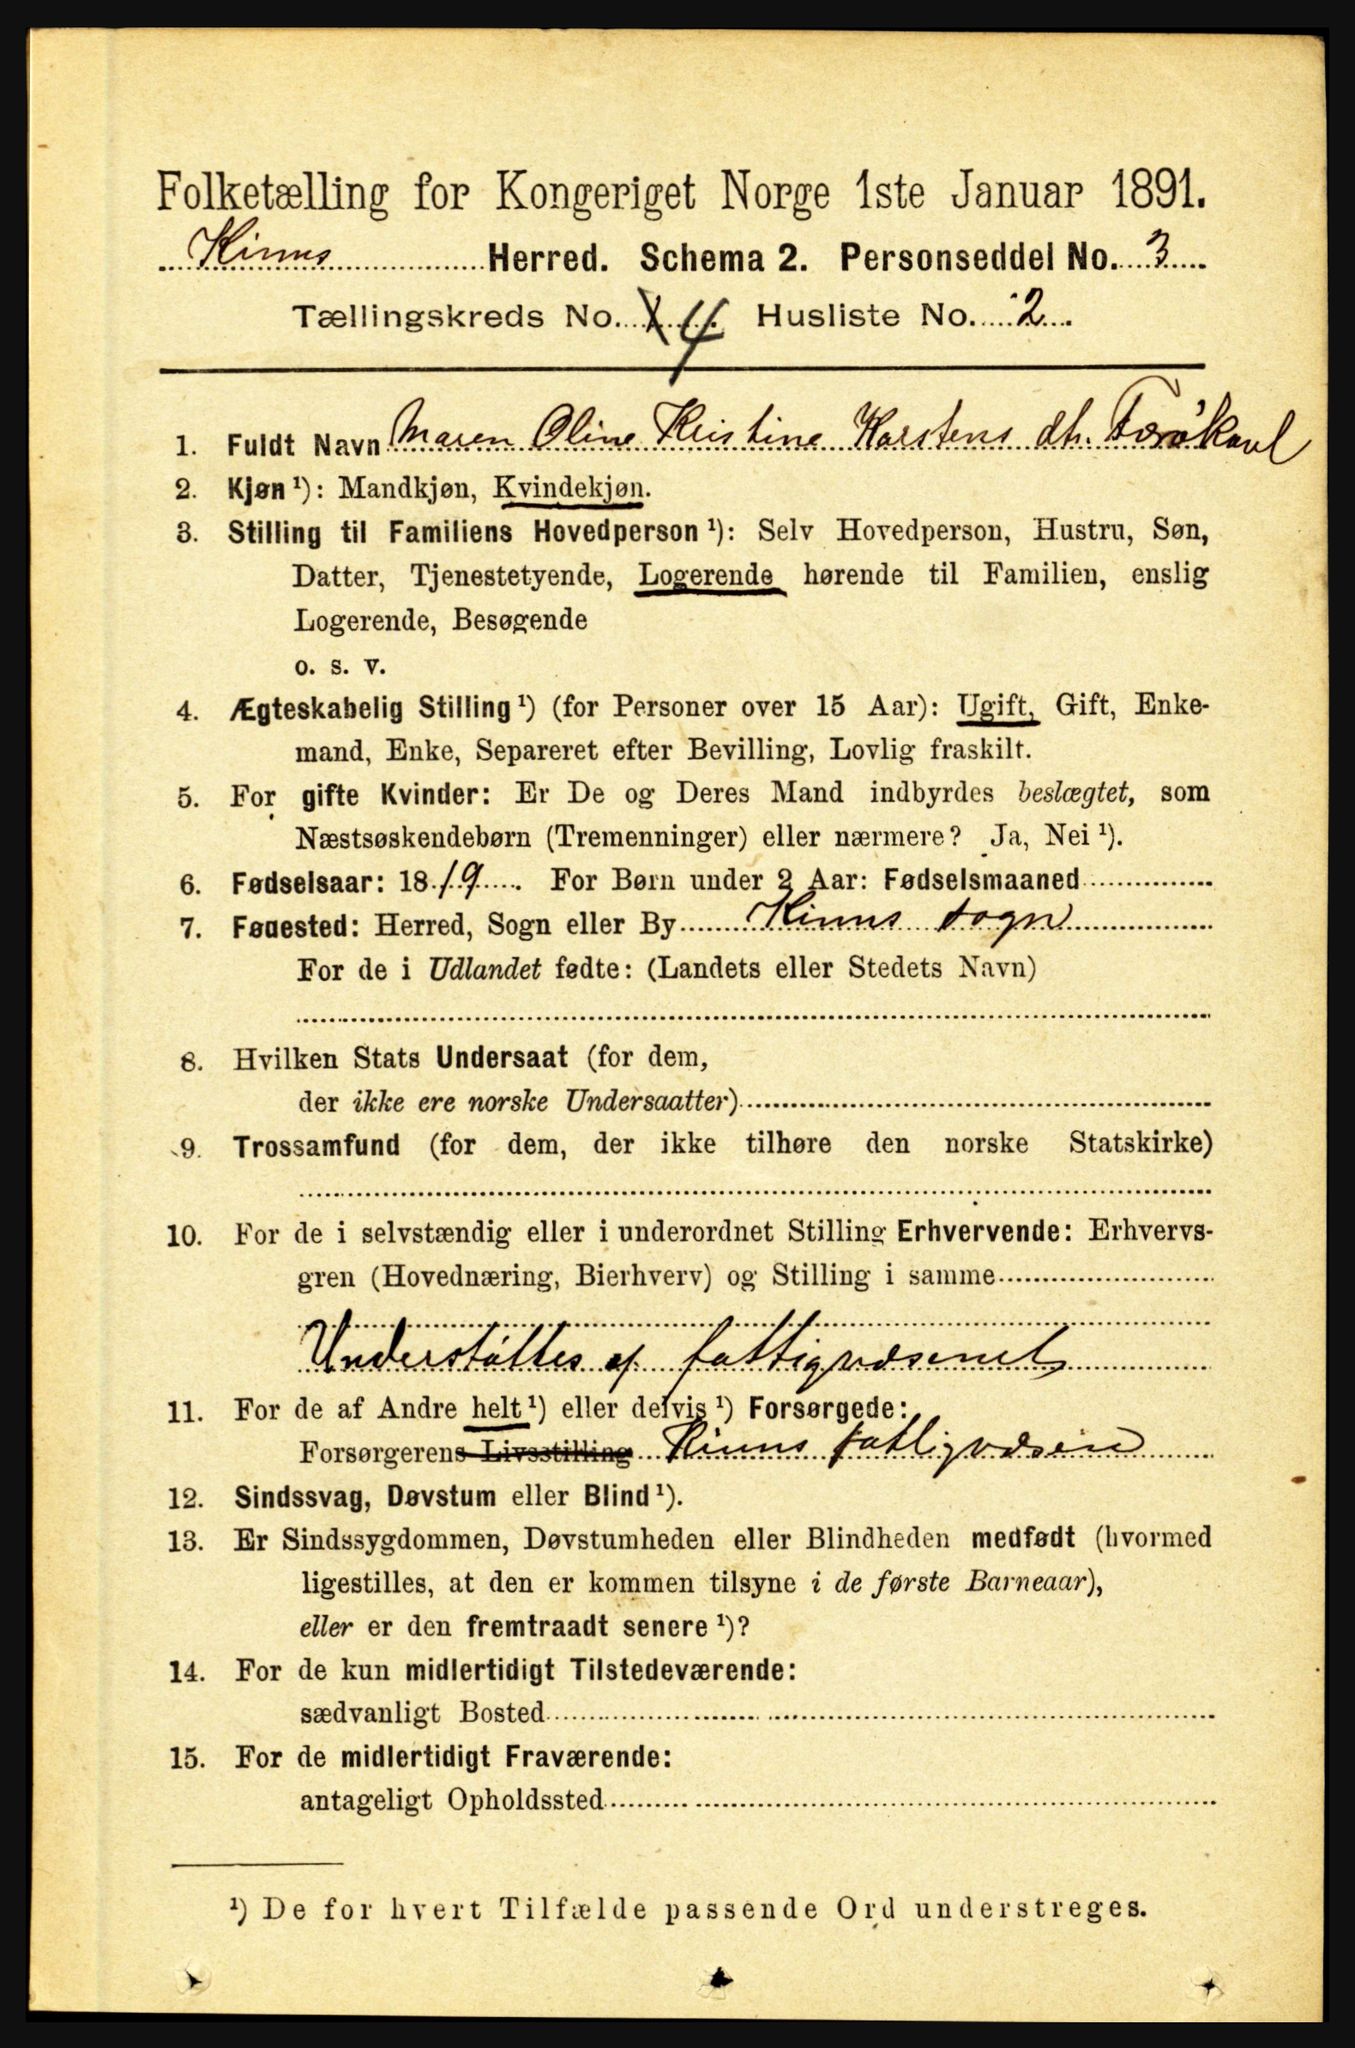 Folketælling for Kongeriget Norge 1ste Januar 1891.
Kinns Herred. Schema 2. Personseddel No. 3
Tællingskreds No. 4 Husliste No. 2
1. Fuldt Navn Maren Oline Kristine Karstens dt.
2. Kjøn ¹): Mandkjøn, Kvindekjøn.
3. Stilling til Familiens Hovedperson ¹): Selv Hovedperson, Hustru, Søn,
Datter, Tjenestetyende, Logerende hørende til Familien, enslig
Logerende, Besøgende
o. s. v.
4. Ægteskabelig Stilling ¹) (for Personer over 15 Aar): Ugift, Gift, Enke-
mand, Enke, Separeret efter Bevilling, Lovlig fraskilt.
5. For gifte Kvinder: Er De og Deres Mand indbyrdes beslægtet, som
Næstsøskendebørn (Tremenninger) eller nærmere? Ja, Nei ¹).
6. Fødselsaar: 1819. For Børn under 2 Aar: Fødselsmaaned
7. Fødested: Herred, Sogn eller By Kinns sogn
For de i Udlandet fødte: (Landets eller Stedets Navn)
8. Hvilken Stats Undersaat (for dem,
der ikke ere norske Undersaatter)
9. Trossamfund (for dem, der ikke tilhøre den norske Statskirke)
10. For de i selvstændig eller i underordnet Stilling Erhvervende: Erhvervs-
gren (Hovednæring, Bierhverv) og Stilling i samme
Understøttes af fattigvæsenet
11. For de af Andre helt ¹) eller delvis ¹) Forsørgede:
Forsørgerens Livsstilling Kinns fattigvæsen
12. Sindssvag, Døvstum eller Blind ¹).
13. Er Sindssygdommen, Døvstumheden eller Blindheden medfødt (hvormed
ligestilles, at den er kommen tilsyne i de første Barneaar),
eller er den fremtraadt senere ¹)?
14. For de kun midlertidigt Tilstedeværende:
sædvanligt Bosted
15. For de midlertidigt Fraværende:
antageligt Opholdssted
¹) De for hvert Tilfælde passende Ord understreges.